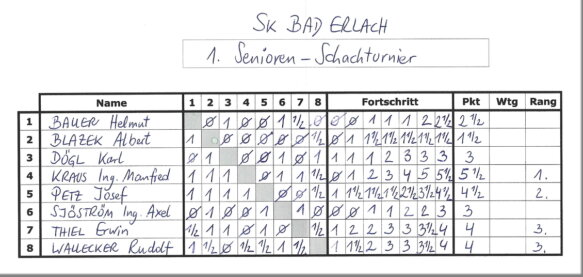 SK BAD ERLACH
1. Senioren - Schachturnier
Name 1 2 3 4 5 6 7 8 Fortschritt Pkt Wtg Rang
1 BAUER Helmut Ø 1 Ø Ø 1 1/2 Ø Ø Ø 1 1 1 2 2 1/2 2 1/2
2 BLAZEK Albert 1 Ø Ø Ø Ø Ø 1/2 Ø 1 1 1/2 1 1/2 1 1/2 1 1/2 1 1/2 1 1/2
3 DÖGL Karl Ø 1 Ø Ø 1 Ø 1 1 1 1 2 3 3 3 3
4 KRAUS Ing. Manfred 1 1 1 Ø 1 1 1/2 Ø 1 2 3 4 5 5 1/2 5 1/2 1.
5 PETZ Josef 1 1 1 1 Ø Ø 1/2 1 1 1/2 1 1/2 1 1/2 2 1/2 3 1/2 4 1/2 4 1/2 2.
6 SJÖSTRÖM Ing. Axel Ø 1 Ø Ø 1 1 Ø Ø Ø 1 1 2 2 3 3
7 THIEL Erwin 1/2 1 1 Ø 1 Ø 1/2 1 2 2 3 3 3 1/2 4 4 3.
8 WALLECKER Rudolf 1 1/2 Ø 1/2 1/2 1 1/2 1 1 1/2 2 3 3 3 1/2 4 4 3.